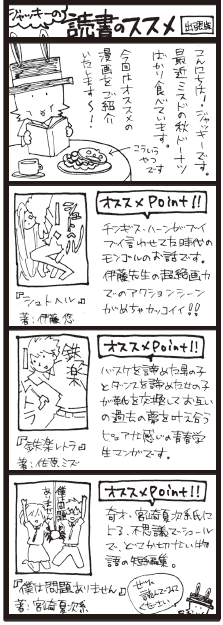 ジャッキーの
読書のススメ
出張版
こんにちは！ジャッキーです。
最近ミスドの秋ドーナツ
ばかり食べています。
今回はオススメの
漫画をご紹介
いたします〜！
こういう
やつです
シュトヘル
『シュトヘル』
著：伊藤悠
オススメPoint!!
チンギス・ハーンがブイ
ブイ言わせてた時代の
モンゴルのお話です。
伊藤先生の超絶画力
でのアクションシーン
がめちゃカッコイイ!!
鉄楽
『鉄楽レトラ』
著：佐原ミズ
オススメPoint!!
バスケを諦めた男の子
とダンスを諦めた女の子
が靴を交換してお互い
の過去の夢を叶え合う
ピュアな感じの青春学
生マンガです。
僕は問題
ありません
『僕は問題ありません』
著：宮崎夏次系
オススメPoint!!
奇才・宮崎夏次系氏に
よる、不思議でシュール
で、とてつもなく切ない物
語の短編集。
ぜひ
読んでみて
ください